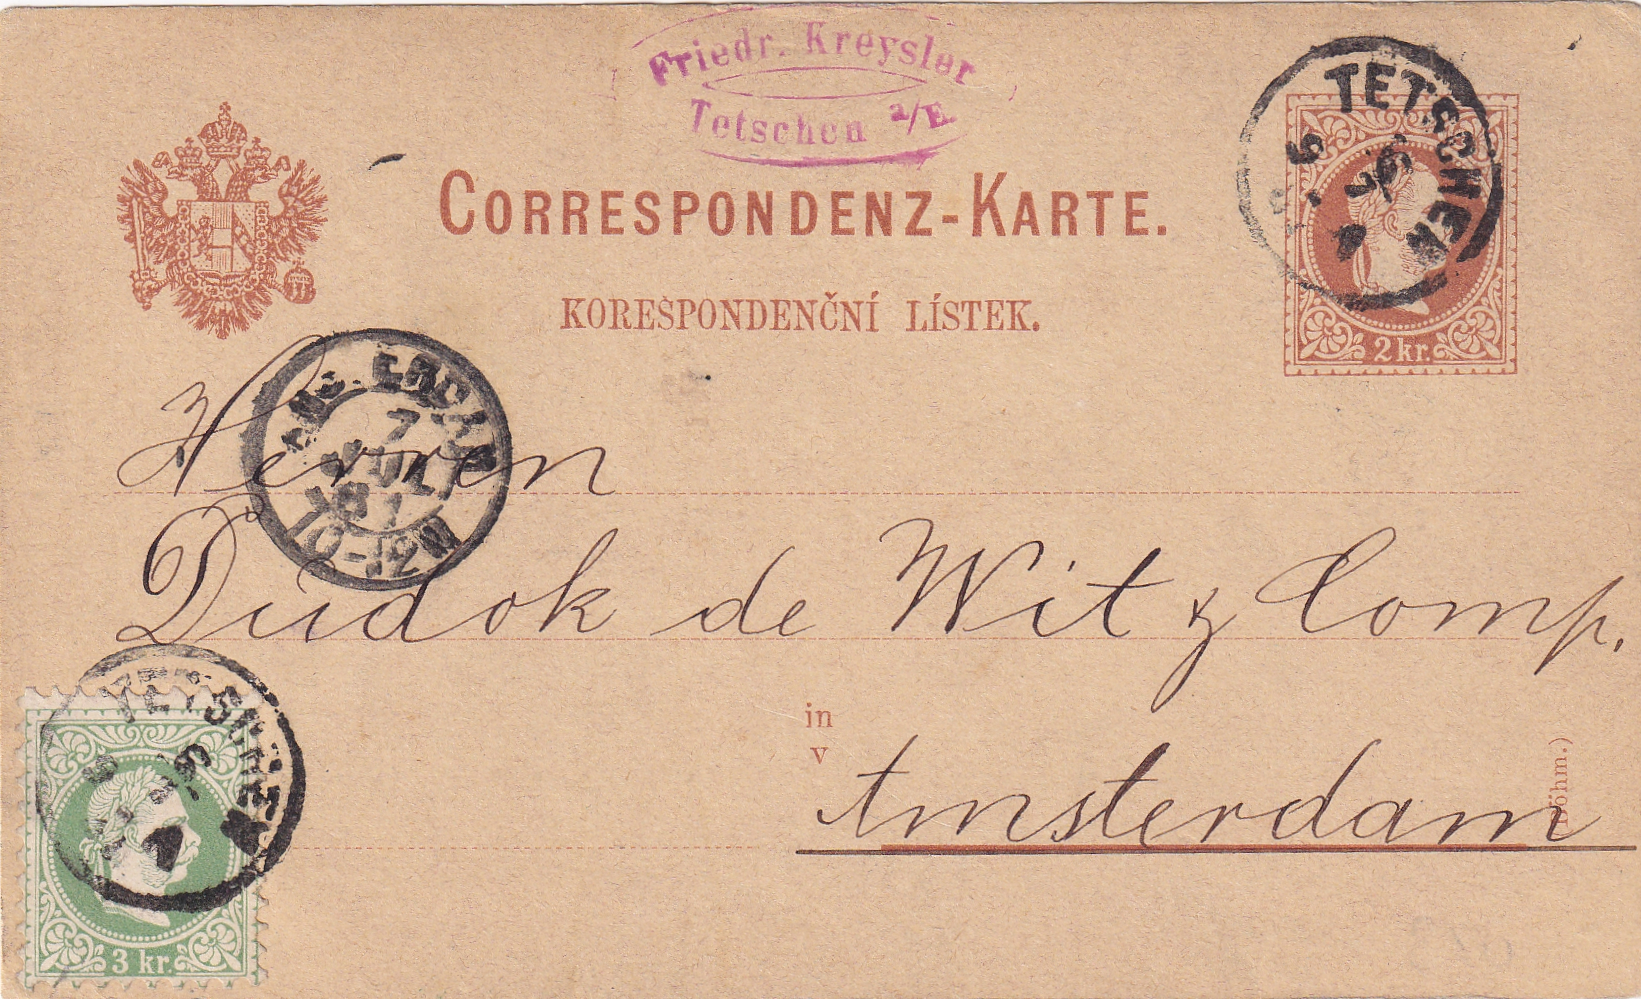 Friedr. Kreysler
Tetschen a/E.
CORRESPONDENZ-KARTE.
KORESPONDENČNÍ LÍSTEK.
TETSCHEN
2 kr.
AMSTERDAM
7
JUL
81
10-12M
Herren
Dudok de Wit & Comp.
in
v
Amsterdam
(Böhm.)
TETSCHEN
3 kr.